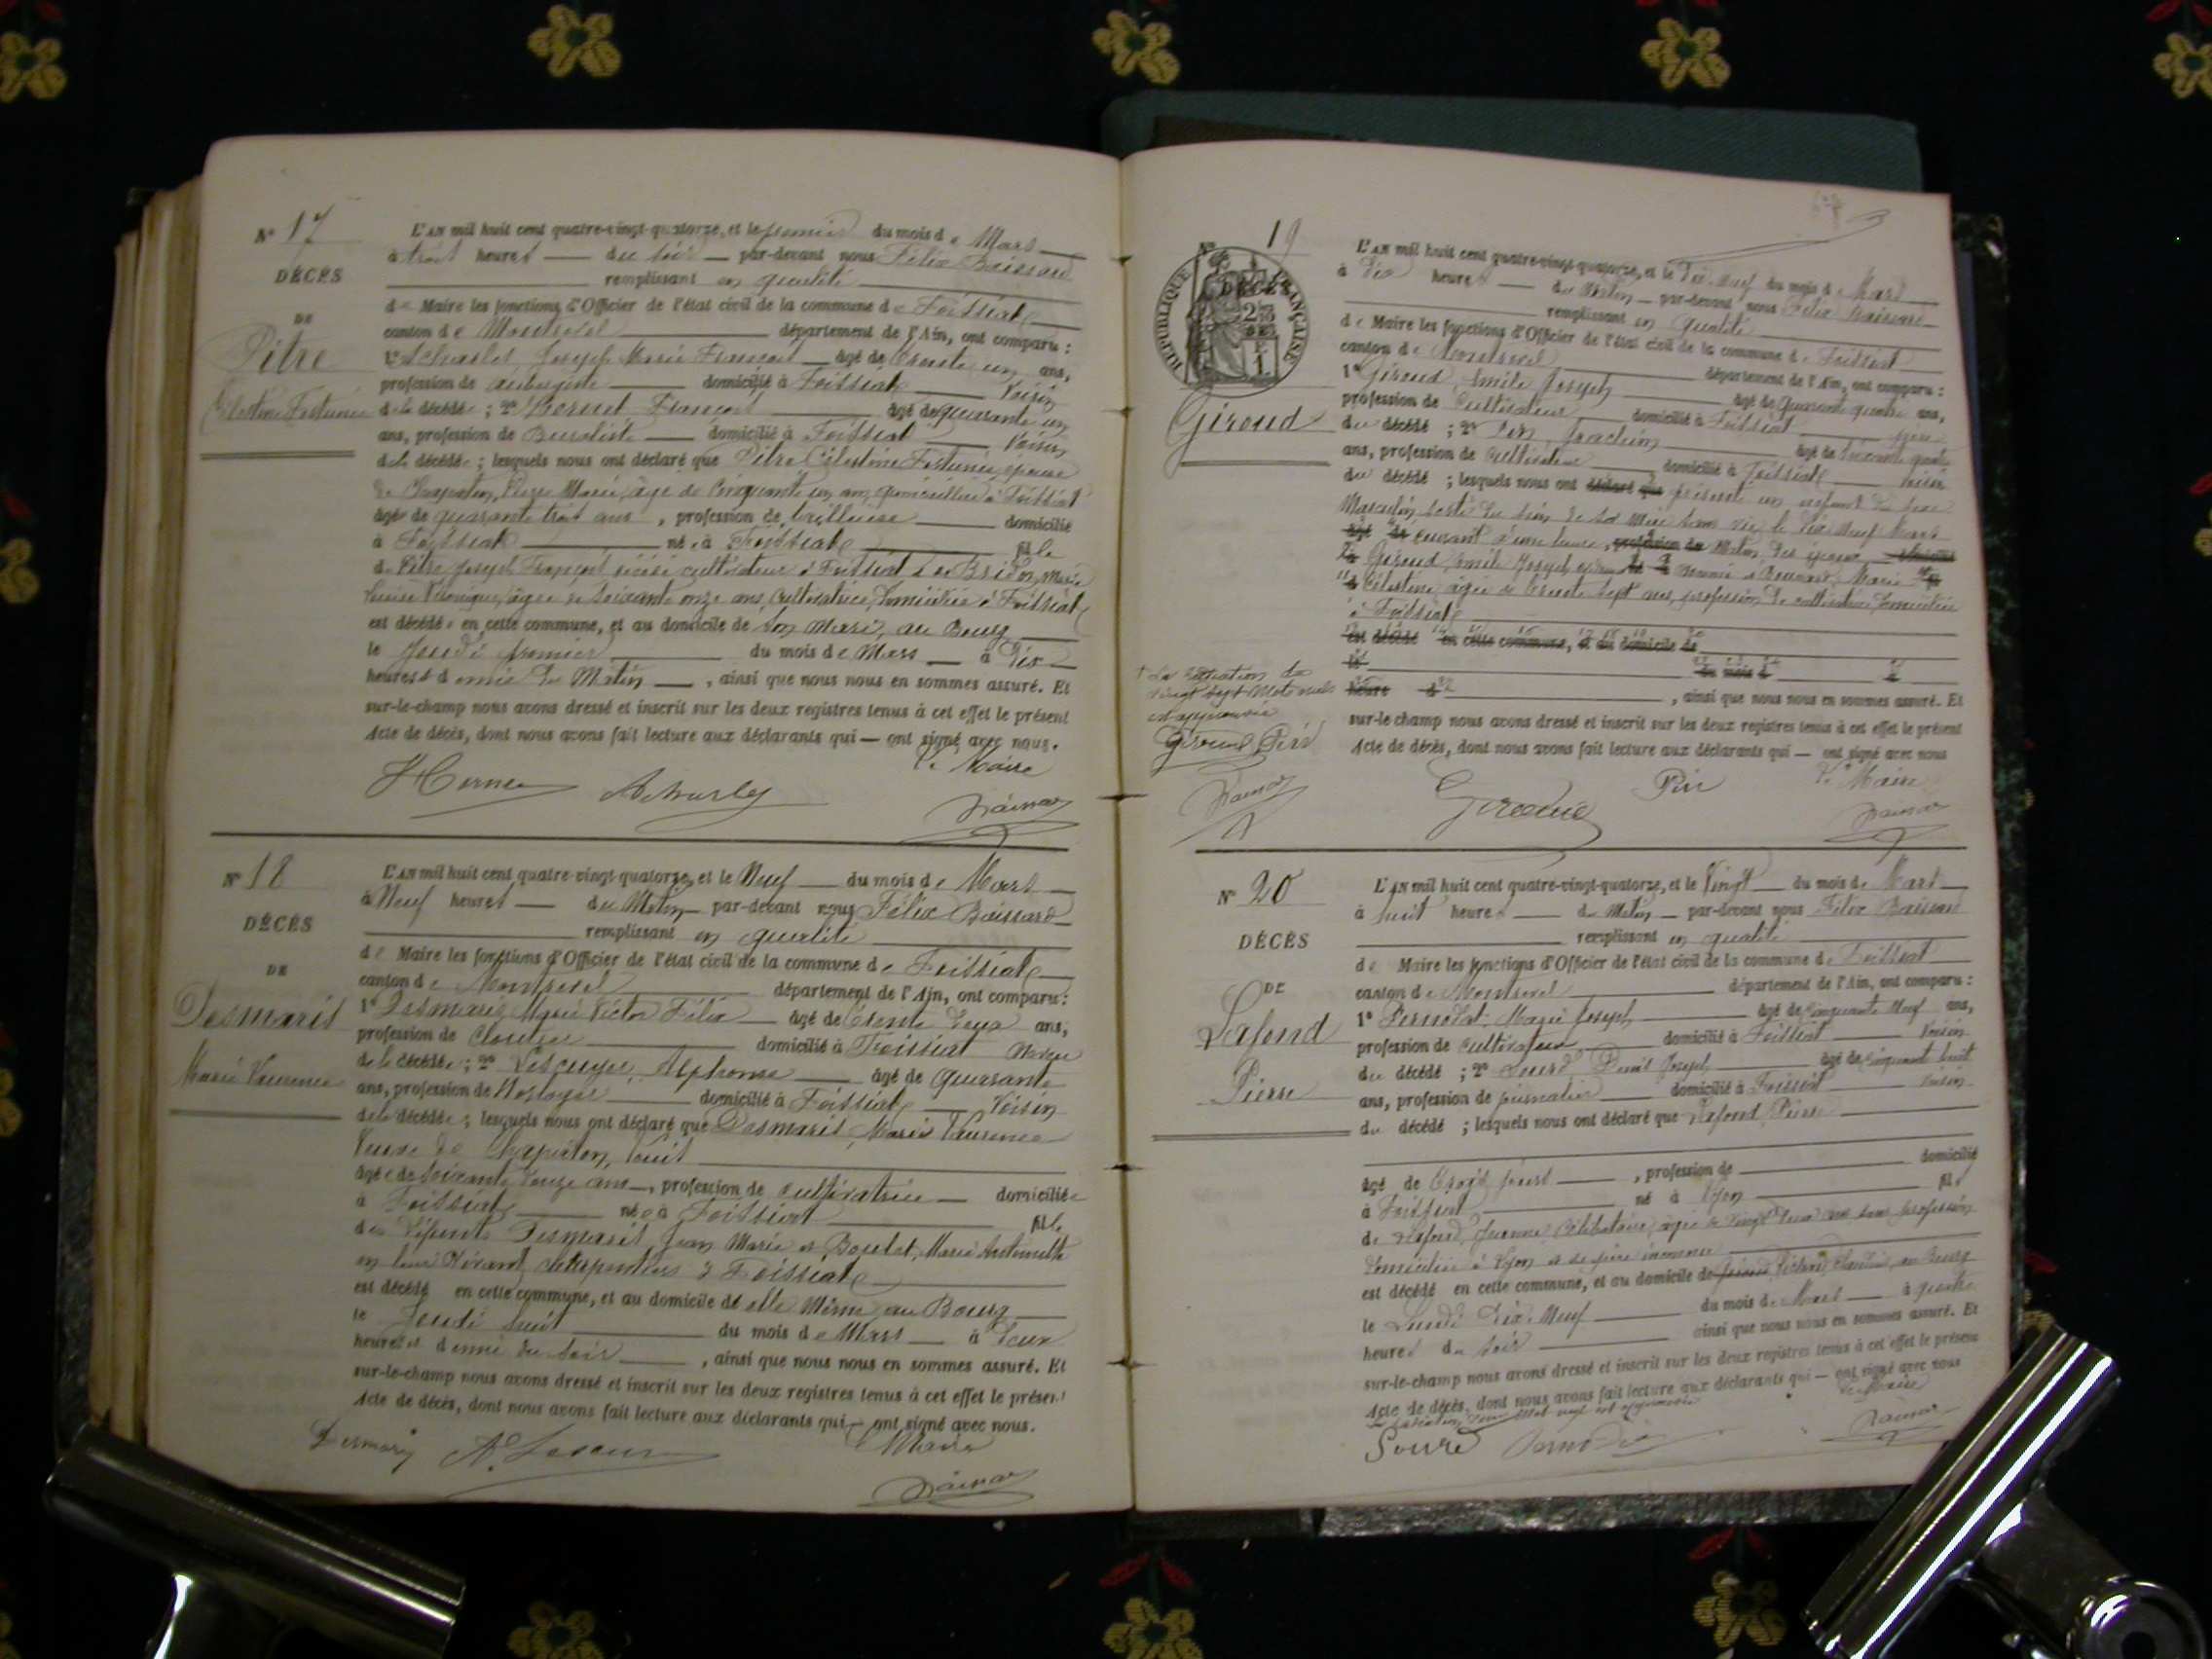 N° 17
DÉCÈS
DE
Pitre
Célestine Fortunée
L'AN mil huit cent quatre-vingt-quatorze, et le premier du mois de Mars
à trois heures du soir par-devant nous Félix Baissard
remplissant en qualité
de Maire les fonctions d'Officier de l'état civil de la commune de Foissiat
canton de Montrevel département de l'Ain, ont comparu :
1° Joseph Marie François âgé de trente un ans,
profession de aubergiste domicilié à Foissiat voisin
de la décédée ; 2° François âgé de quarante un
ans, profession de Buraliste domicilié à Foissiat voisin
de la décédée ; lesquels nous ont déclaré que Pitre Célestine Fortunée, épouse
de Marie, âgé de Cinquante un ans, domicilié à Foissiat
âgée de quarante trois ans, profession de tailleuse domicilié
à Foissiat née à Foissiat fille
de Pitre Joseph François décédé cultivateur à Foissiat et de Marie
Véronique, âgée de soixante onze ans, Cultivatrice, domiciliée à Foissiat
est décédée en cette commune, et au domicile de son Mari, au Bourg
le Jeudi premier du mois de Mars à Dix
heures et demie du Matin, ainsi que nous nous en sommes assuré. Et
sur-le-champ nous avons dressé et inscrit sur les deux registres tenus à cet effet le présent
Acte de décès, dont nous avons fait lecture aux déclarants qui ont signé avec nous.
Le Maire
N° 18
DÉCÈS
DE
Desmaris
Marie Laurence
L'AN mil huit cent quatre-vingt-quatorze, et le Neuf du mois de Mars
à Neuf heures du Matin par-devant nous Félix Baissard
remplissant en qualité
de Maire les fonctions d'Officier de l'état civil de la commune de Foissiat
canton de Montrevel département de l'Ain, ont comparu :
1° Desmaris Marie Victor Félix âgé de trente deux ans,
profession de Cloutier domicilié à Foissiat neveu
de la décédée ; 2° Lescuyer, Alphonse âgé de quarante
ans, profession de Horloger domicilié à Foissiat voisin
de la décédée ; lesquels nous ont déclaré que Desmaris, Marie Laurence
Veuve de Louis
âgée de soixante douze ans, profession de cultivatrice domiciliée
à Foissiat née à Foissiat fille
des défunts Desmaris, Jean Marie et Boulet, Marie Antoinette
en leur vivant charpentiers à Foissiat
est décédé en cette commune, et au domicile de elle Même au Bourg
le Jeudi huit du mois de Mars à Deux
heures et demie du soir, ainsi que nous nous en sommes assuré. Et
sur-le-champ nous avons dressé et inscrit sur les deux registres tenus à cet effet le présent
Acte de décès, dont nous avons fait lecture aux déclarants qui ont signé avec nous.
Le Maire
Desmaris
N° 19
RÉPUBLIQUE FRANÇAISE
Giroud
L'AN mil huit cent quatre-vingt-quatorze, et le Dix neuf du mois de Mars
à Dix heures du Matin par-devant nous Félix Baissard
remplissant en qualité
de Maire les fonctions d'Officier de l'état civil de la commune de Foissiat
canton de Montrevel département de l'Ain, ont comparu :
1° Giroud, Emile Joseph âgé de quarante quatre ans,
profession de Cultivateur domicilié à Foissiat père
du décédé ; 2° Joachim âgé de soixante quatre
ans, profession de Cultivateur domicilié à Foissiat voisin
du décédé ; lesquels nous ont déclaré que présenté un enfant du sexe
Masculin, sorti du sein de sa Mère sans vie, le dix Neuf Mars
courant à une heure, profession de Matin des époux
Giroud, Emile Joseph Marie
Célestine, âgée de trente sept ans, profession de cultivatrice, domiciliée
à Foissiat
est décédé en cette commune, et au domicile de
le du mois d à
heure d, ainsi que nous nous en sommes assuré. Et
sur-le-champ nous avons dressé et inscrit sur les deux registres tenus à cet effet le présent
Acte de décès, dont nous avons fait lecture aux déclarants qui ont signé avec nous
La radiation de
vingt sept Mots nuls
est approuvée
Giroud
Giroud
Le Maire
N° 20
DÉCÈS
DE
Lafond
Pierre
L'AN mil huit cent quatre-vingt-quatorze, et le Vingt du mois de Mars
à huit heures du Matin par-devant nous Félix Baissard
remplissant en qualité
de Maire les fonctions d'Officier de l'état civil de la commune de Foissiat
canton de Montrevel département de l'Ain, ont comparu :
1° Marie Joseph âgé de Cinquante Neuf ans,
profession de Cultivateur domicilié à Foissiat voisin
du décédé ; 2° Denis Joseph, âgé de cinquante huit
ans, profession de journalier domicilié à Foissiat voisin
du décédé ; lesquels nous ont déclaré que Lafond, Pierre
âgé de trois jours, profession de domicilié
à Foissiat né à Lyon fils
de Lafond, Jeanne, Célibataire, âgée de vingt deux ans sans profession
domiciliée à Lyon et de père inconnu
est décédé en cette commune, et au domicile de au Bourg
le Lundi Dix Neuf du mois de Mars à quatre
heures du soir ainsi que nous nous en sommes assuré. Et
sur-le-champ nous avons dressé et inscrit sur les deux registres tenus à cet effet le présent
Acte de décès, dont nous avons fait lecture aux déclarants qui ont signé avec nous
Le Maire
La radiation d'un Mot nul est approuvée